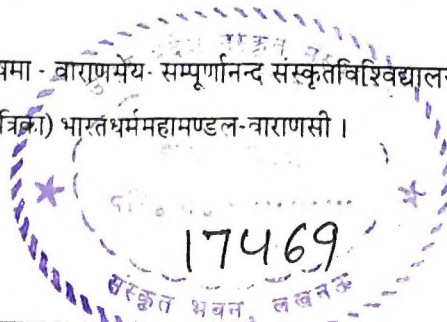 षमा - वाराणसेय- सम्पूर्णानन्द संस्कृतविश्विद्याल
त्रिका) भारतधर्ममहामण्डल-वाराणसी ।
17469
संस्कृत भवन, लखनऊ